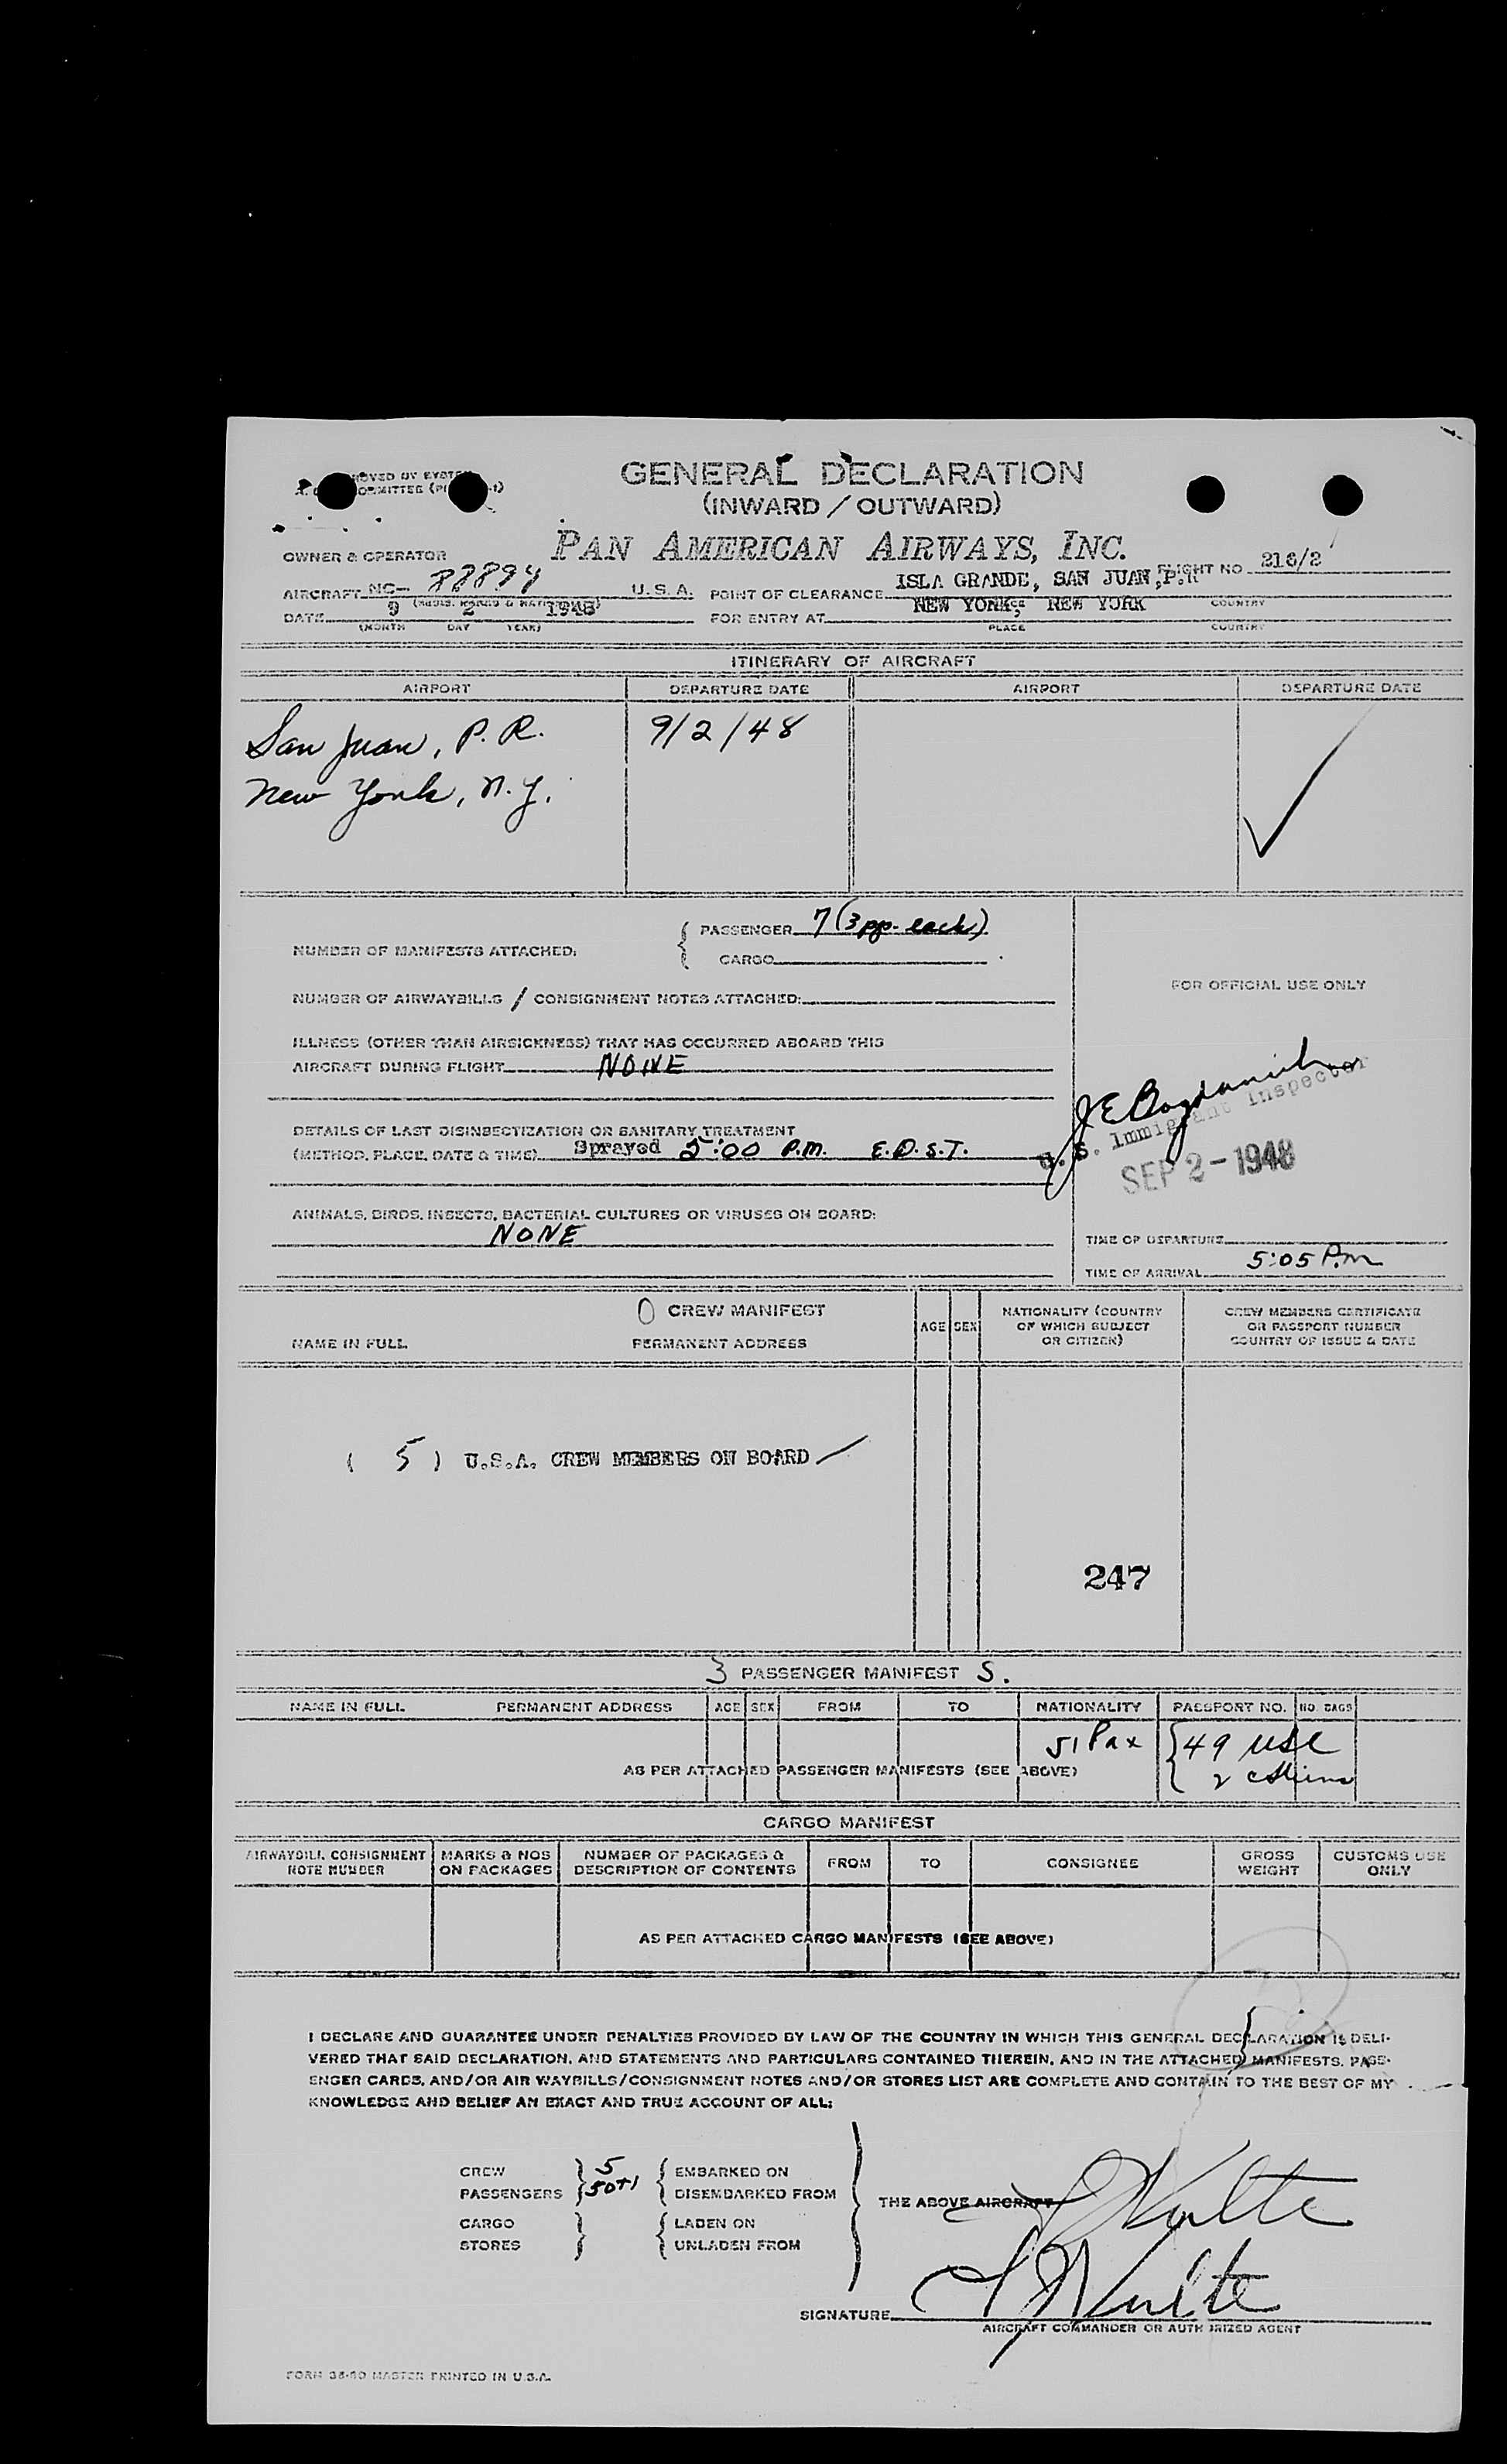 GENERAL DECLARATION
(INWARD / OUTWARD)
OWNER & OPERATOR PAN AMERICAN AIRWAYS, INC.
FLIGHT NO. 216/2
AIRCRAFT NC- 88894 U.S.A. POINT OF CLEARANCE ISLA GRANDE, SAN JUAN, P.R
DATE 9 2 1948 FOR ENTRY AT NEW YORK, NEW YORK COUNTRY
(MONTH DAY YEAR) PLACE COUNTRY
ITINERARY OF AIRCRAFT
AIRPORT DEPARTURE DATE AIRPORT DEPARTURE DATE
San Juan, P.R. 9/2/48
New York, N.Y.
NUMBER OF MANIFESTS ATTACHED: PASSENGER 7 (3 pp. each)
CARGO
NUMBER OF AIRWAYBILLS / CONSIGNMENT NOTES ATTACHED:
FOR OFFICIAL USE ONLY
ILLNESS (OTHER THAN AIRSICKNESS) THAT HAS OCCURRED ABOARD THIS
AIRCRAFT DURING FLIGHT NONE
U.S. Immigrant Inspector
SEP 2-1948
DETAILS OF LAST DISINSECTIZATION OR SANITARY TREATMENT
(METHOD, PLACE, DATE & TIME) Sprayed 5:00 P.M. E.D.S.T.
ANIMALS, BIRDS, INSECTS, BACTERIAL CULTURES OR VIRUSES ON BOARD:
NONE
TIME OF DEPARTURE
TIME OF ARRIVAL 5:05 P.m
0 CREW MANIFEST
NAME IN FULL PERMANENT ADDRESS AGE SEX NATIONALITY (COUNTRY OF WHICH SUBJECT OR CITIZEN) CREW MEMBERS CERTIFICATE OR PASSPORT NUMBER COUNTRY OF ISSUE & DATE
( 5 ) U.S.A. CREW MEMBERS ON BOARD
247
3 PASSENGER MANIFEST S.
NAME IN FULL PERMANENT ADDRESS AGE SEX FROM TO NATIONALITY PASSPORT NO. NO. BAGS
51 Pax 49 USC
AS PER ATTACHED PASSENGER MANIFESTS (SEE ABOVE) 2
CARGO MANIFEST
AIRWAYBILL CONSIGNMENT NOTE NUMBER MARKS & NOS ON PACKAGES NUMBER OF PACKAGES & DESCRIPTION OF CONTENTS FROM TO CONSIGNEE GROSS WEIGHT CUSTOMS USE ONLY
AS PER ATTACHED CARGO MANIFESTS (SEE ABOVE)
I DECLARE AND GUARANTEE UNDER PENALTIES PROVIDED BY LAW OF THE COUNTRY IN WHICH THIS GENERAL DECLARATION IS DELI-
VERED THAT SAID DECLARATION, AND STATEMENTS AND PARTICULARS CONTAINED THEREIN, AND IN THE ATTACHED MANIFESTS, PASS-
ENGER CARDS, AND/OR AIR WAYBILLS/CONSIGNMENT NOTES AND/OR STORES LIST ARE COMPLETE AND CONTAIN TO THE BEST OF MY
KNOWLEDGE AND BELIEF AN EXACT AND TRUE ACCOUNT OF ALL:
CREW 5 EMBARKED ON
PASSENGERS 50+1 DISEMBARKED FROM
THE ABOVE AIRCRAFT
CARGO LADEN ON
STORES UNLADEN FROM
SIGNATURE
AIRCRAFT COMMANDER OR AUTHORIZED AGENT
FORM 35-50 MASTER PRINTED IN U.S.A.